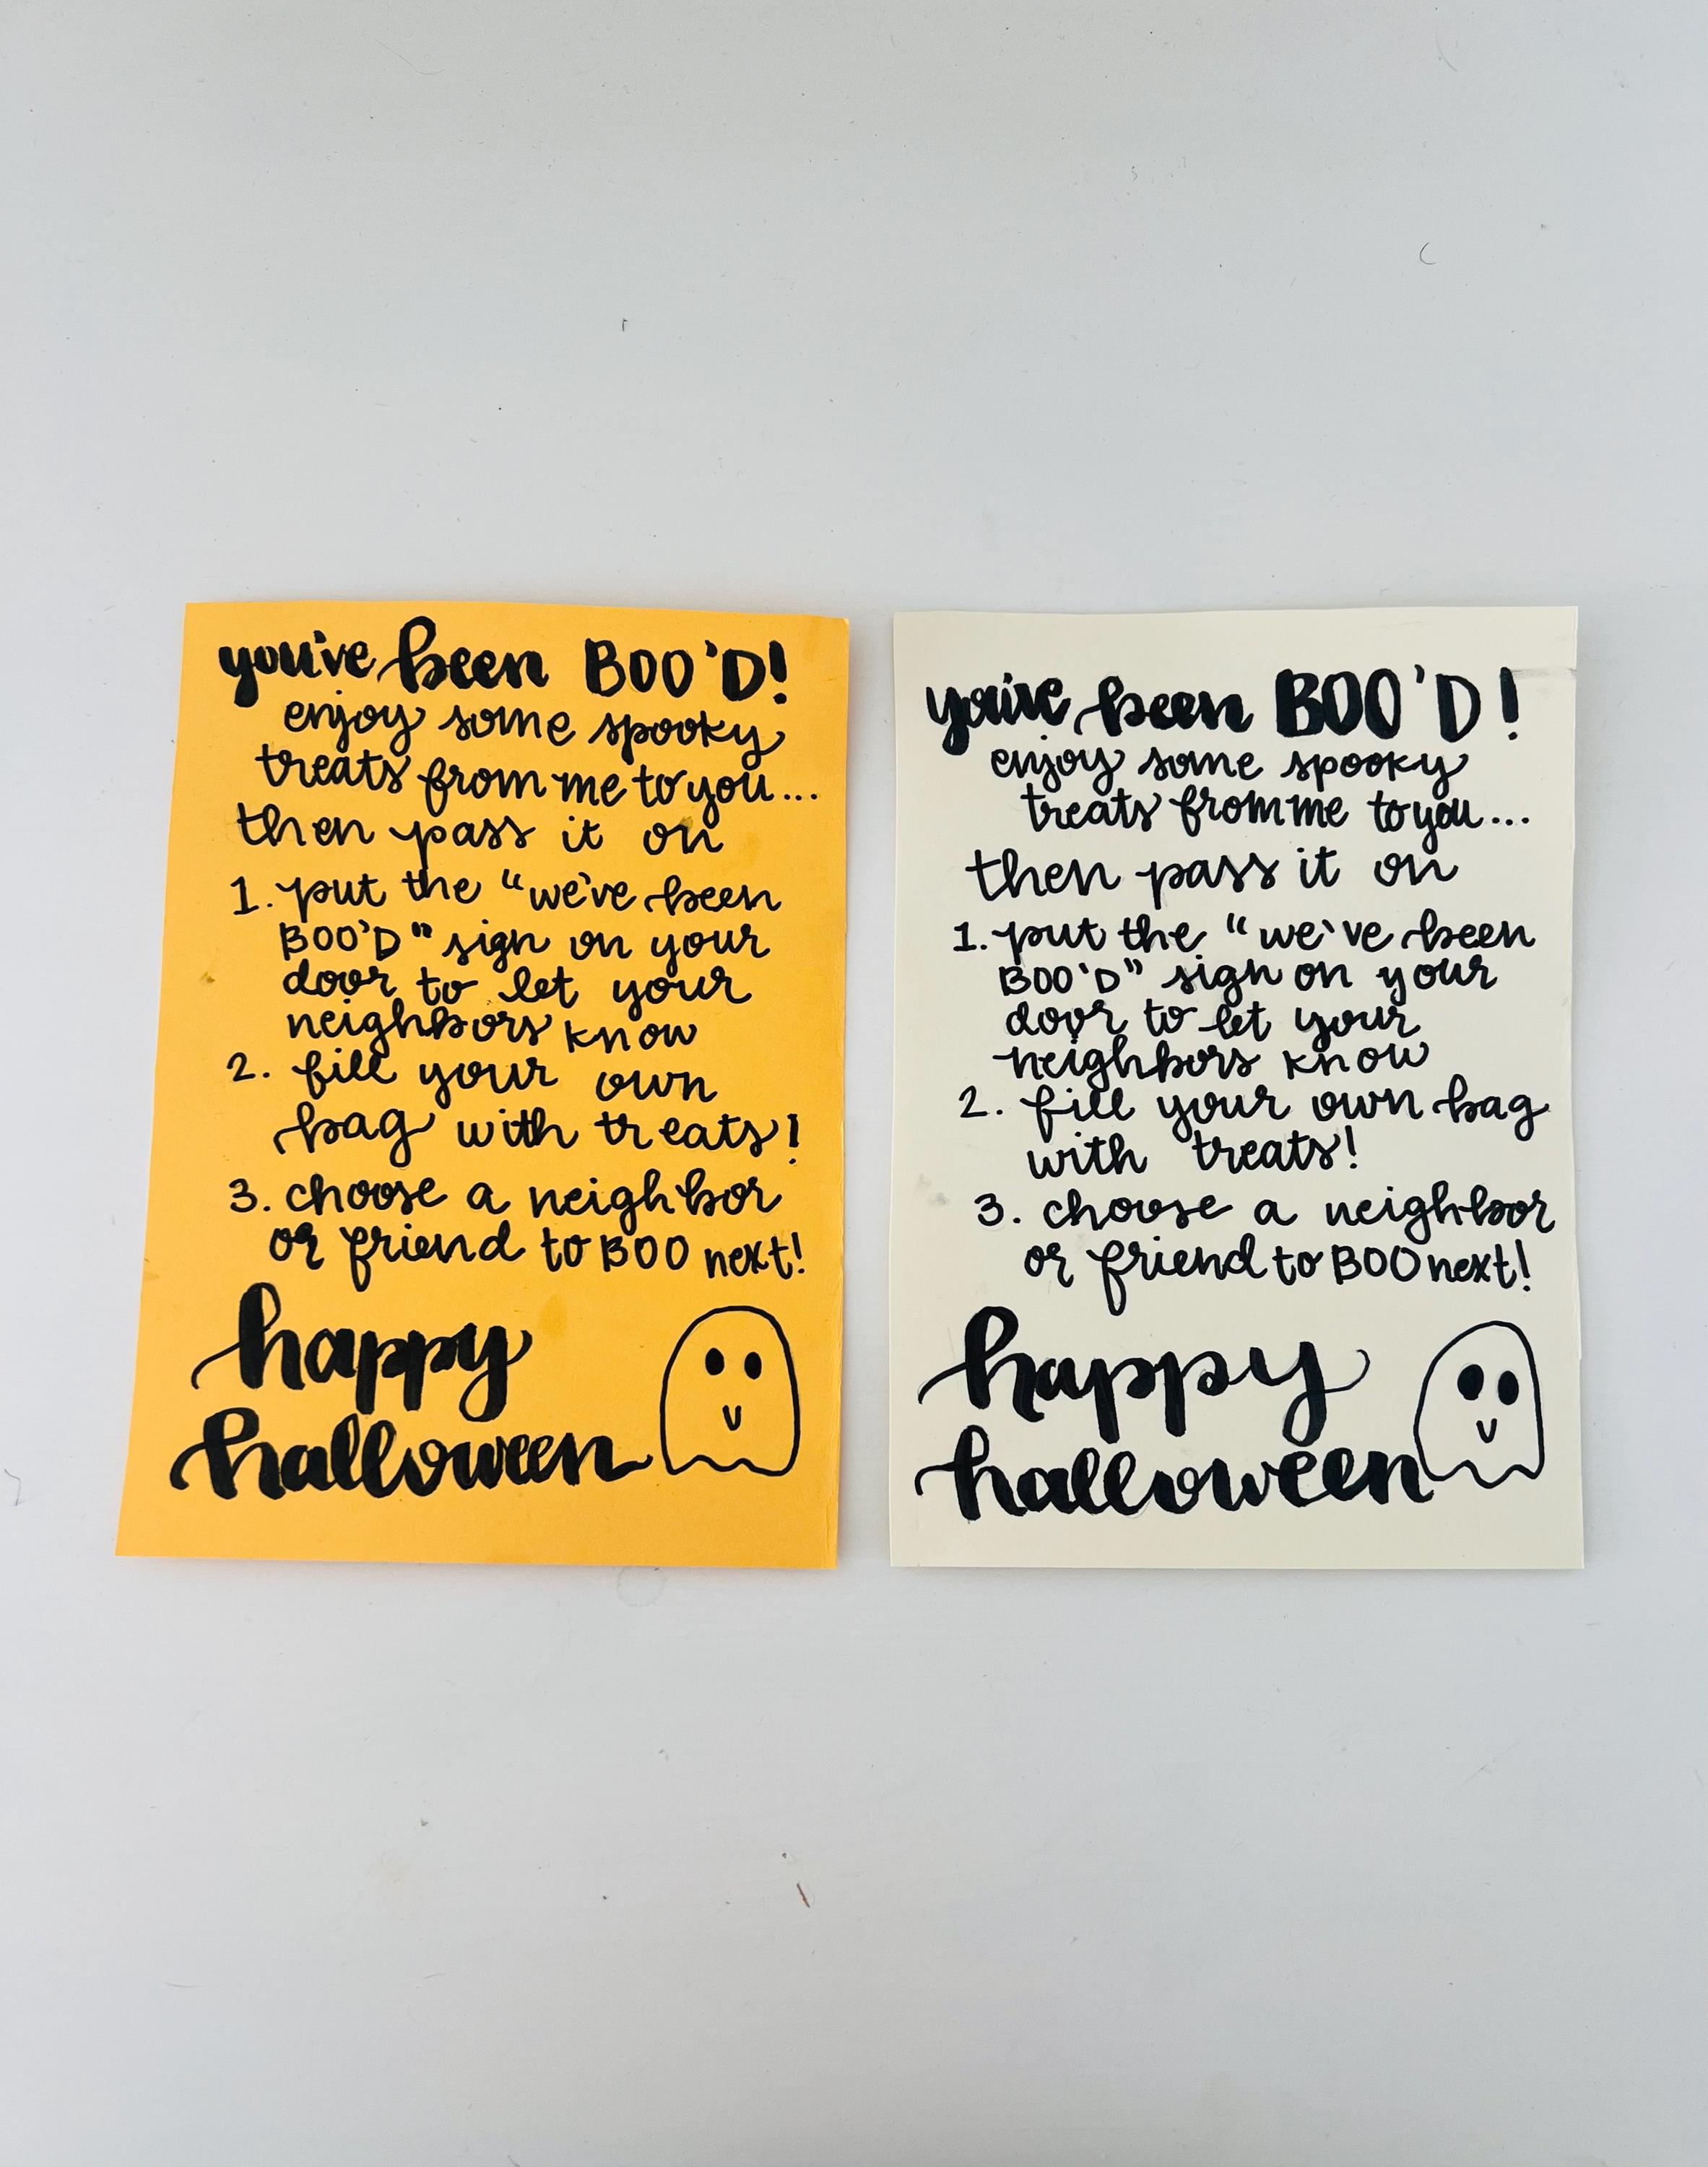 you've been BOO'D!
enjoy some spooky
treats from me to you...
then pass it on
1. put the "we've been
BOO'D" sign on your
door to let your
neighbors know
2. fill your own
bag with treats!
3. choose a neighbor
or friend to BOO next!
happy
halloween
you've been BOO'D!
enjoy some spooky
treats from me to you...
then pass it on
1. put the "we've been
BOO'D" sign on your
door to let your
neighbors know
2. fill your own bag
with treats!
3. choose a neighbor
or friend to BOO next!
happy
halloween